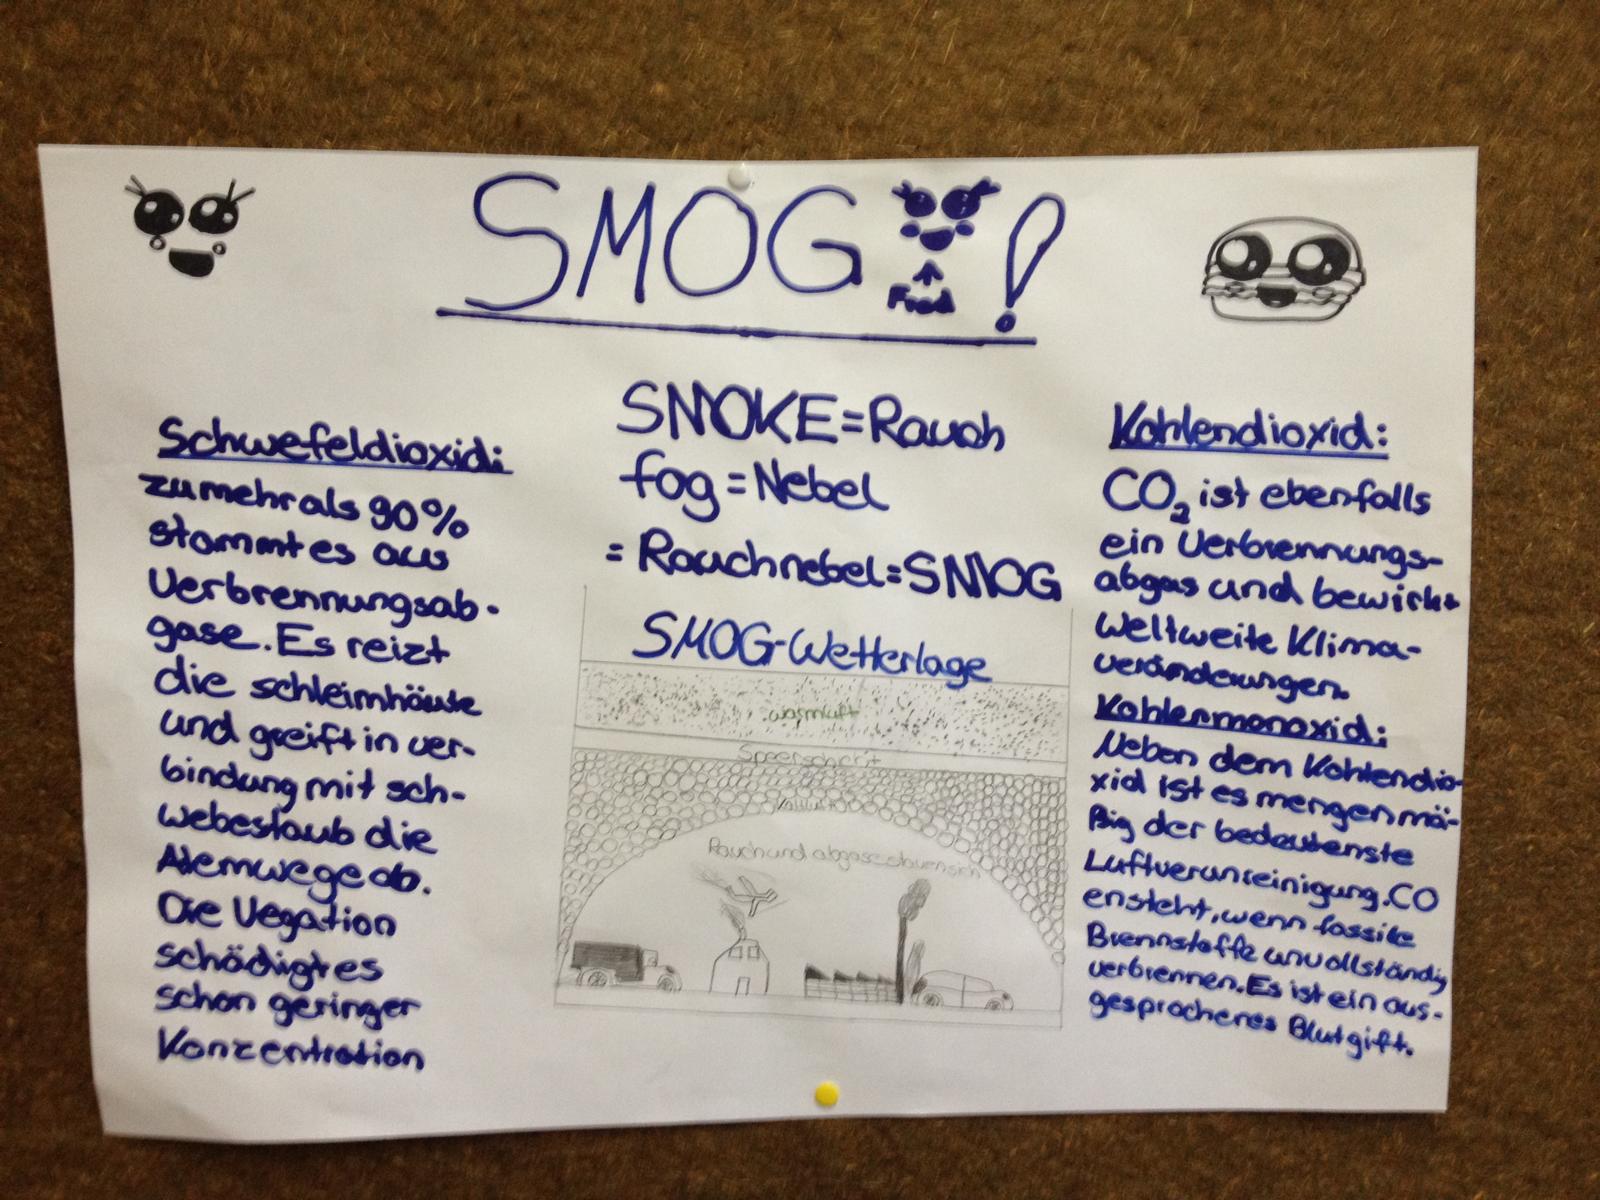 SMOG !
Fred
Schwefeldioxid:
zu mehr als 90%
stammt es aus
Verbrennungsab-
gase. Es reizt
die schleimhäute
und greift in ver-
bindung mit sch-
webestaub die
Atemwege ab.
Die Vegation
schädigt es
schon geringer
Konzentration
SMOKE = Rauch
fog = Nebel
= Rauchnebel = SMOG
SMOG-Wetterlage
warmluft
Speerschicht
Kaltluft
Rauch und abgase stauen sich
Kohlendioxid:
CO₂ ist ebenfalls
ein Verbrennungs-
abgas und bewirkt
weltweite Klima-
veränderungen.
Kohlenmonoxid:
Neben dem Kohlendio-
xid ist es mengenmä-
ßig der bedeutenste
Luftverunreinigung. CO
ensteht, wenn fossile
Brennstoffe unvollständig
verbrennen. Es ist ein aus-
gesprochenes Blutgift.